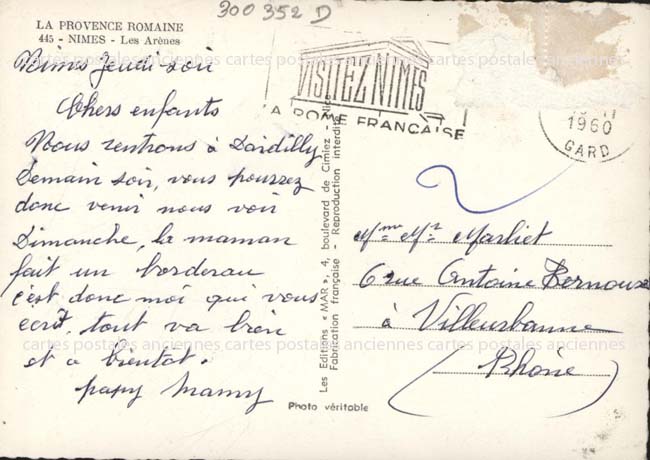 300 352 D
LA PROVENCE ROMAINE
445 - NIMES - Les Arènes
Nîmes Jeudi soir
Chers enfants
Nous rentrons à Dardilly
Demain soir, vous pourrez
donc venir nous voir
Dimanche, la maman
fait un borderau
c'est donc moi qui vous
écrit. tout va bien
et a bientat.
papy Mamy
VISITEZ NIMES
LA ROME FRANÇAISE
1960
GARD
Les Editions « MAR », 4, boulevard de Cimiez - Nice
Fabrication française - Reproduction interdite
Mme Mr Marliet
6 rue Antoine
à Villeurbanne
(Rhône)
Photo véritable
cartes postales anciennes cartes postales anciennes cartes postales anciennes
cartes postales anciennes cartes postales anciennes cartes postales anciennes